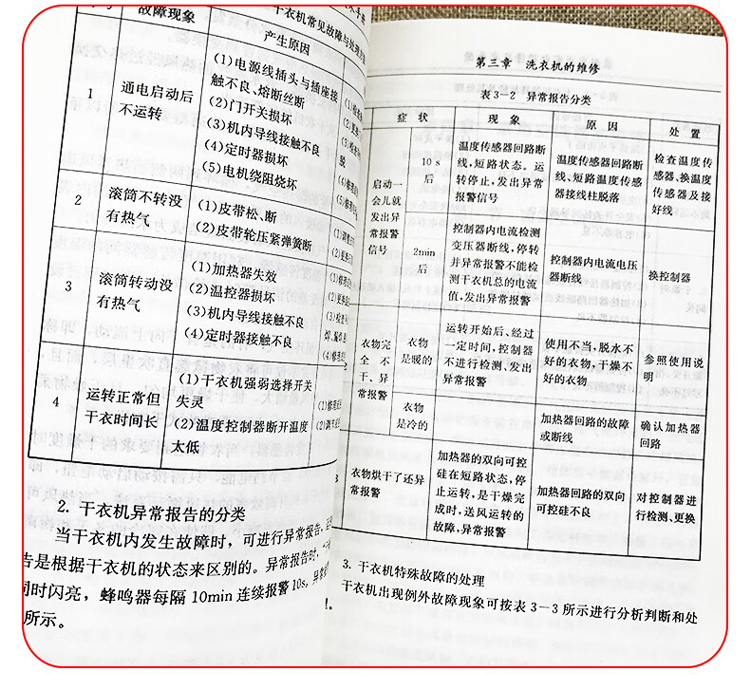 干衣机常见故障与处理方
故障现象
产生原因
1
通电启动后
不运转
(1)电源线插头与插座接
触不良、熔断丝断
(2)门开关损坏
(3)机内导线接触不良
(4)定时器损坏
(5)电机绕阻烧坏
2
滚筒不转没
有热气
(1)皮带松、断
(2)皮带轮压紧弹簧断
3
滚筒转动没
有热气
(1)加热器失效
(2)温控器损坏
(3)机内导线接触不良
(4)定时器接触不良
4
运转正常但
干衣时间长
(1)干衣机强弱选择开关
失灵
(2)温度控制器断开温度
太低
2. 干衣机异常报告的分类
当干衣机内发生故障时，可进行异常报告。
告是根据干衣机的状态来区别的。异常报告时，
同时闪亮，蜂鸣器每隔 10min 连续报警 10s，异常
所示。
第三章 洗衣机的维修
表 3－2 异常报告分类
症 状
现 象
原 因
处 置
启动一
会儿就
发出异
常报警
信号
10 s
后
温度传感器回路断
线、短路状态。运
转停止，发出异常
报警信号
温度传感器回路断
线、短路温度传感
器接线柱脱落
检查温度传
感器、换温度
传感器及接
好线
2min
后
控制器内电流检测
变压器断线，停转
并异常报警不能检
测干衣机总的电流
值，发出异常报警
控制器内电流电压
器断线
换控制器
衣物完
全 不
干、异
常报警
衣物
是暖的
运转开始后、经过
一定时间，控制器
不进行检测、发出
异常报警
使用不当，脱水不
好的衣物，干燥不
好的衣物
参照使用说
明
衣物
是冷的
加热器回路的故障
或断线
确认加热器
回路
衣物烘干了还异
常报警
加热器的双向可控
硅在短路状态，停
止运转，是干燥完
成时，送风运转的
故障，异常报警
加热器回路的双向
可控硅不良
对控制器进
行检测、更换
3. 干衣机特殊故障的处理
干衣机出现例外故障现象可按表 3－3 所示进行分析判断和处